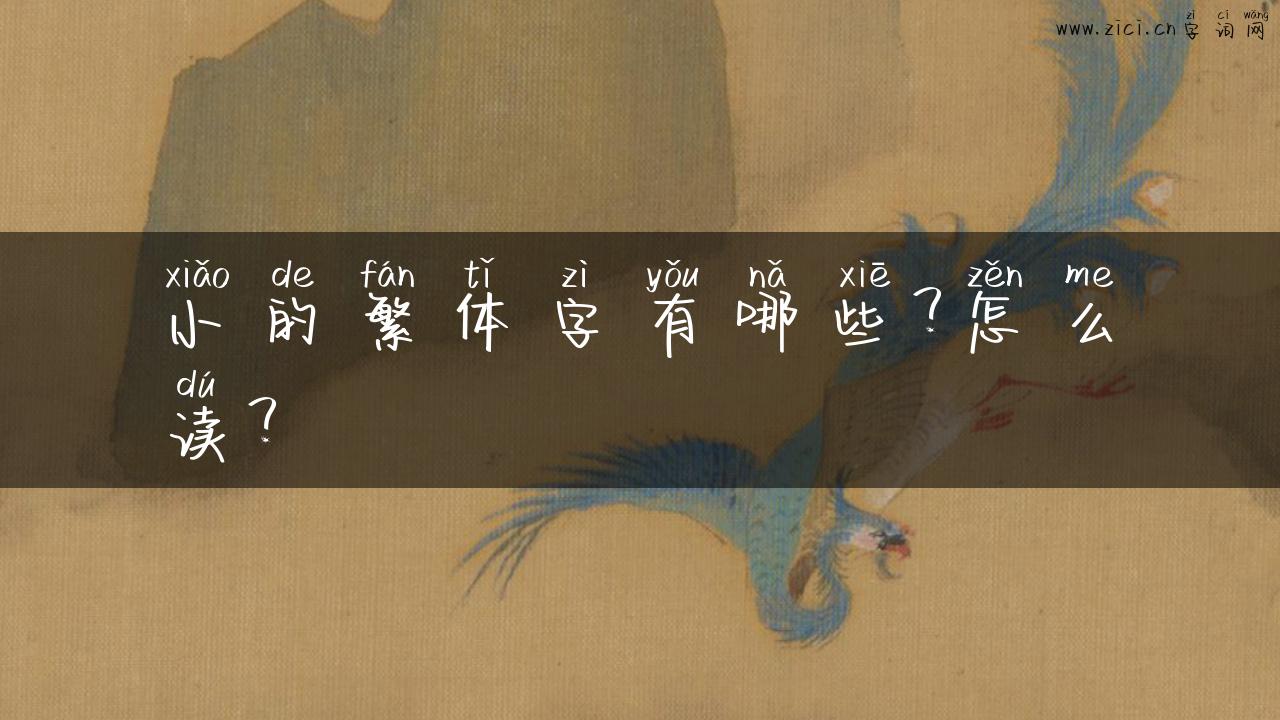 www.zici.cn zì cí wǎng
字词网
xiǎo de fán tǐ zì yǒu nǎ xiē zěn me
小的繁体字有哪些？怎么
dú
读？